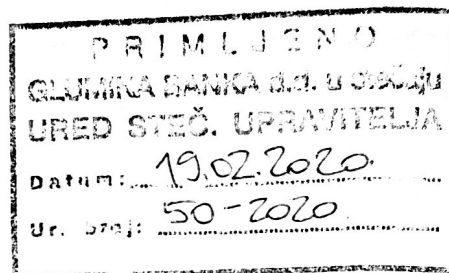 PRIMLJENO
GLUMINA BANKA d.d. u stečaju
URED STEČ. UPRAVITELJA
Datum: 19.02.2020.
Ur. broj: 50-2020